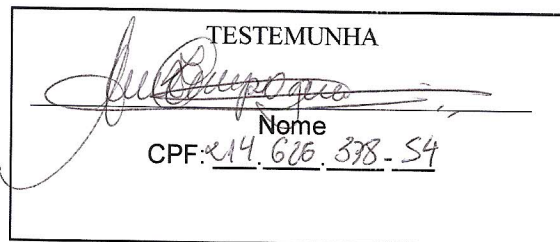 TESTEMUNHA
Nome
CPF: 214.626.378-54